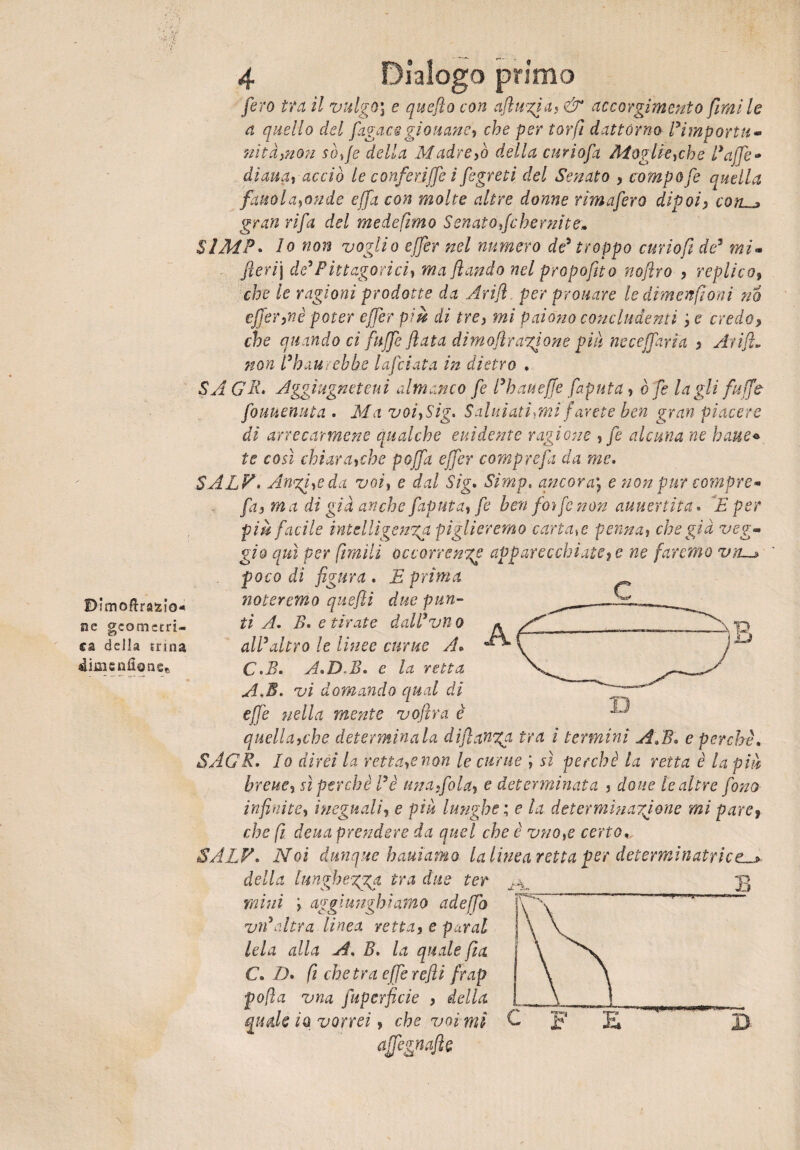 4 Dialogo primo
ſero tra il vulgo; e queſto con aſtuzia, & accorgimento ſimile
a quello del ſagace giouane, che per torſi dattorno l'importu-
nità, non sò, ſe della Madre, ò della curioſa Moglie, che l'aſſe-
diaua, acciò le conferiſſe i ſegreti del Senato, compoſe quella
fauola, onde eſſa con molte altre donne rimaſero dipoi, con
gran riſa del medeſimo Senato, ſchernite.
SIMP. Io non voglio eſſer nel numero de' troppo curioſi de' mi-
ſterij de' Pittagorici, ma ſtando nel propoſito noſtro, replico,
che le ragioni prodotte da Ariſt. per prouare le dimenſioni nō
eſſer, nè poter eſſer più di tre, mi paiono concludenti; e credo,
che quando ci fuſſe ſtata dimoſtrazione più neceſſaria, Ariſt.
non l'haurebbe laſciata in dietro.
SAGR. Aggiugneteui almanco ſe l'haueſſe ſaputa, ò ſe la gli fuſſe
ſouuenuta. Ma voi, Sig. Saluiati, mi farete ben gran piacere
di arrecarmene qualche euidente ragione, ſe alcuna ne haue-
te così chiara, che poſſa eſſer compreſa da me.
SALV. Anzi, e da voi, e dal Sig. Simp. ancora; e non pur compre-
ſa, ma di già anche ſaputa, ſe ben forſe non auuertita. E per
più facile intelligenza piglieremo carta, e penna, che già veg-
gio quì per ſimili occorrenze apparecchiate, e ne faremo vn
poco di figura. E prima
noteremo queſti due pun-
ti A. B. e tirate dall'vno
all'altro le linee curue A.
C.B. A.D.B. e la retta
A.B. vi domando qual di
eſſe nella mente voſtra è
Dimoſtrazio-
ne geometri-
ca della trina
dimenſione.
C
A
B
D
quella, che determina la diſtanza tra i termini A.B. e perchè.
SAGR. Io direi la retta, e non le curue; sì perchè la retta è la più
breue, sì perchè l'è vna, ſola, e determinata, doue le altre ſono
infinite, ineguali, e più lunghe; e la determinazione mi pare,
che ſi deua prendere da quel che è vno, e certo.
SALV. Noi dunque hauiamo la linea retta per determinatrice
della lunghezza tra due ter
mini; aggiunghiamo adeſſo
vn'altra linea retta, e paral
lela alla A. B. la quale ſia
C. D. ſi che tra eſſe reſti frap
poſta vna ſuperficie, della
quale io vorrei, che voi mi
A B
C F E D
aſſegnaſte